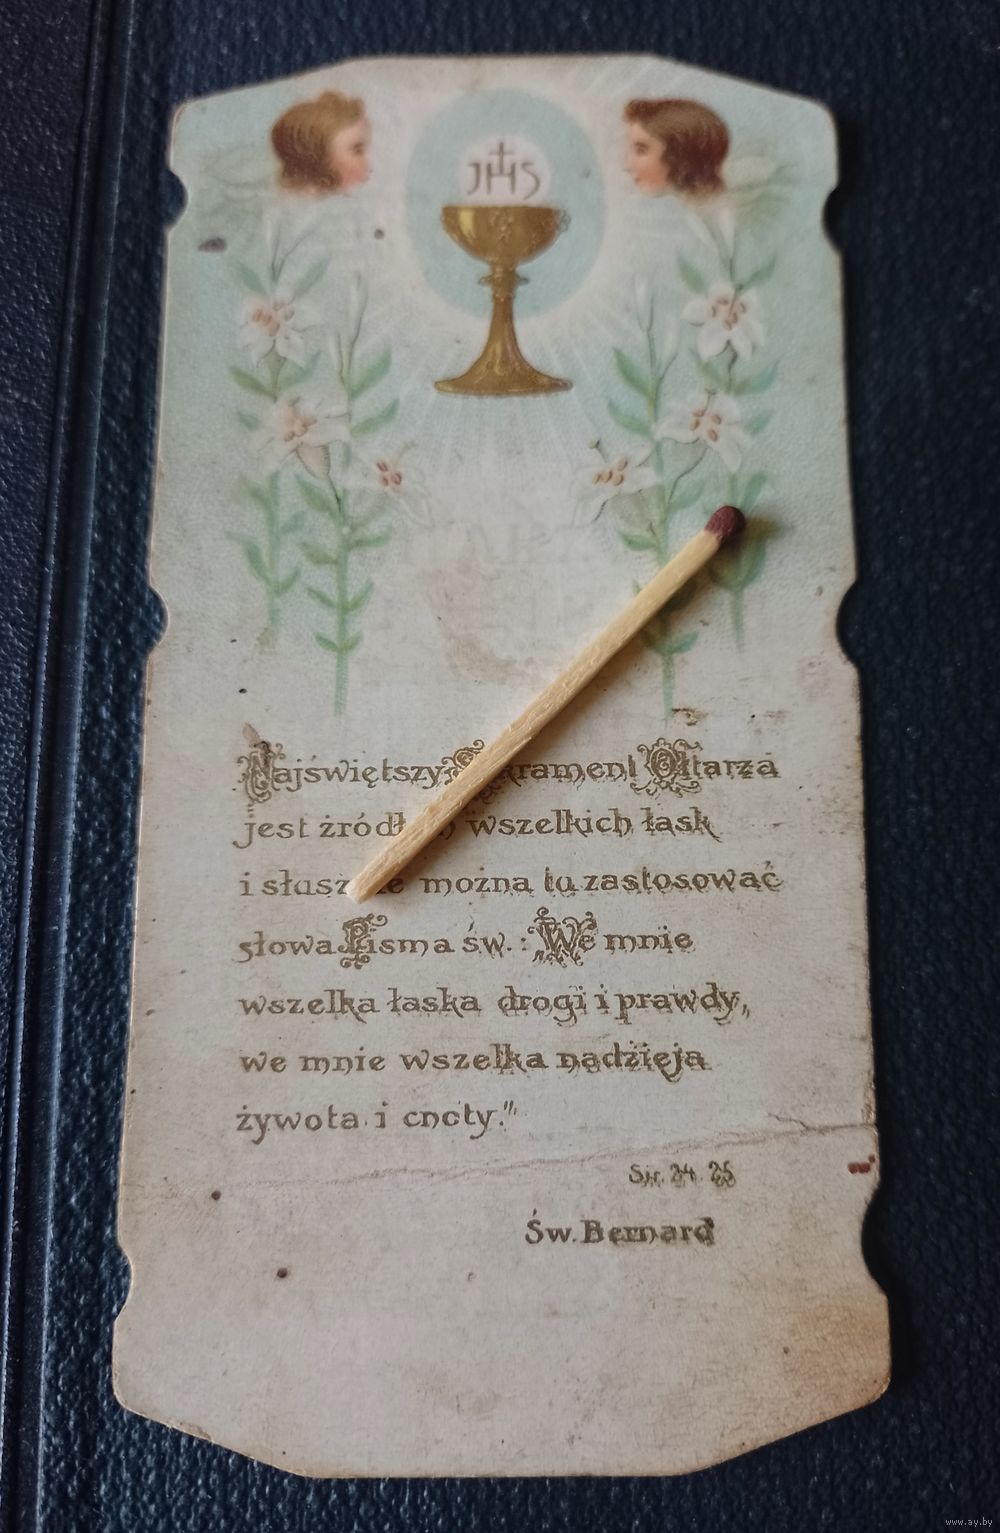 JHS
Najświętszy Sakrament Ołtarza
jest źródłem wszelkich łask
i słusznie można tu zastosować
słowa Pisma św.: We mnie
wszelka łaska drogi i prawdy,
we mnie wszelka nadzieja
żywota i cnoty."
Sir. 24. 25
Św. Bernard
www.ay.by